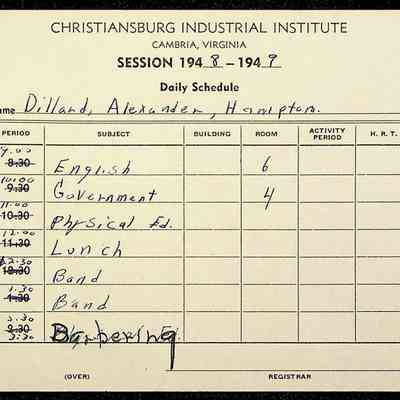 CHRISTIANSBURG INDUSTRIAL INSTITUTE
CAMBRIA, VIRGINIA
SESSION 194 8 – 194 9
Daily Schedule
ame Dillard, Alexander, Hampton.
PERIOD SUBJECT BUILDING ROOM ACTIVITY PERIOD H. R. T.
9.00
8:30 English 6
10:00
9:30 Government 4
11.00
10:30 Physical Ed.
12.00
11:30 Lunch
12.30
12:30 Band
1.30
1:30 Band
2:30
3:30 Barbering
(OVER) REGISTRAR